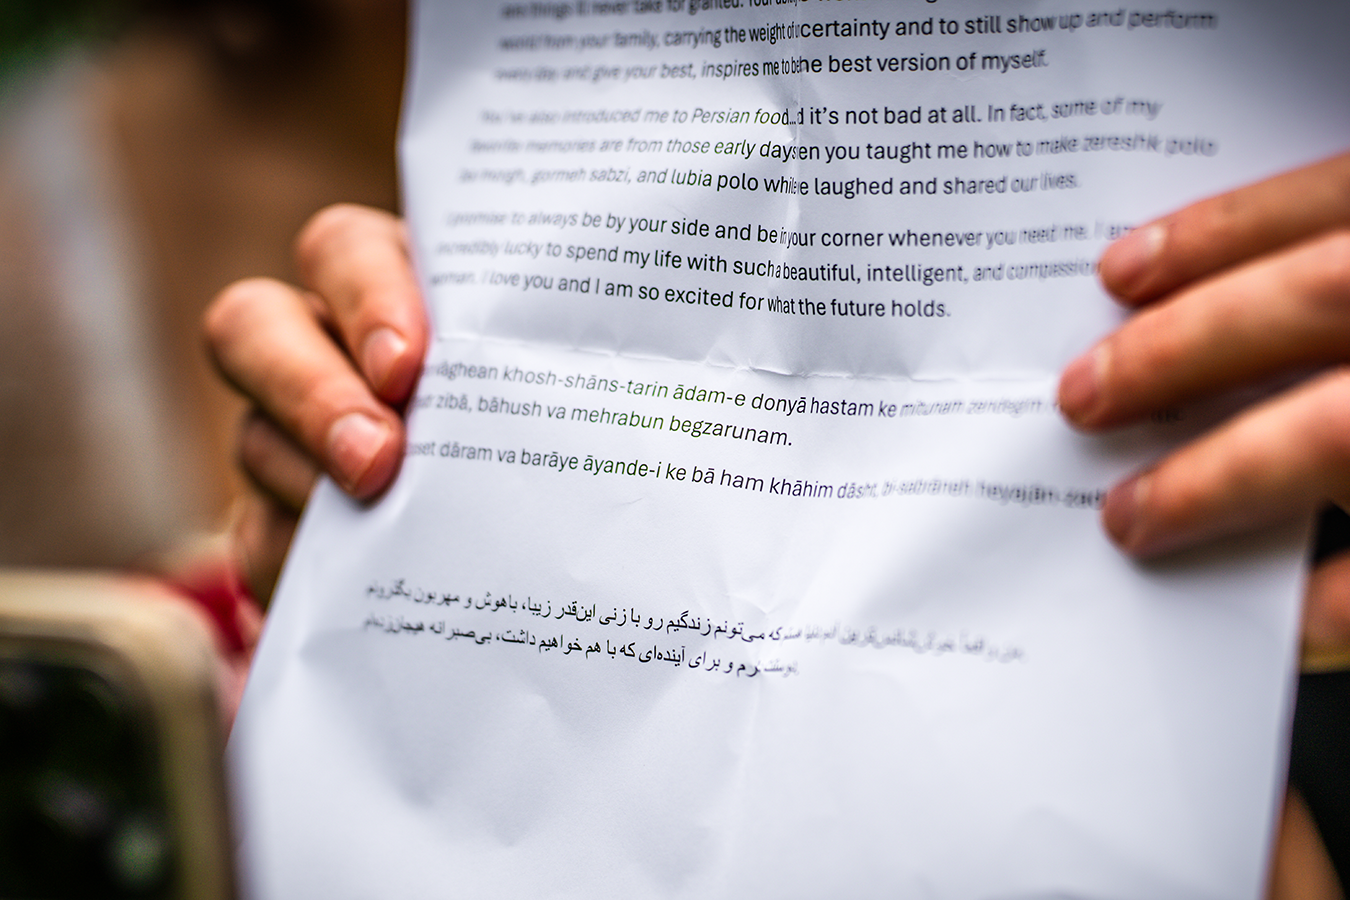 things I never take for granted. Your
world from your family, carrying the weight of certainty and to still show up and perform
every day and give your best, inspires me to be the best version of myself.
You've also introduced me to Persian food... it's not bad at all. In fact, some of my
favorite memories are from those early days en you taught me how to make zereshk polo
ba morgh, gormeh sabzi, and lubia polo while e laughed and shared our lives.
I promise to always be by your side and be in your corner whenever you need me. I am
incredibly lucky to spend my life with such a beautiful, intelligent, and compassion
woman. I love you and I am so excited for what the future holds.
vāghean khosh-shāns-tarin ādam-e donyā hastam ke mitunam zendegim
zibā, bāhush va mehrabun begzarunam.
set dāram va barāye āyande-i ke bā ham khāhim dāsht, bi-sabrāneh hayajān-zad
که می‌تونم زندگیم رو با زنی این‌قدر زیبا، باهوش و مهربون بگذرونم
رم و برای آینده‌ای که با هم خواهیم داشت، بی‌صبرانه هیجان‌زده‌ام